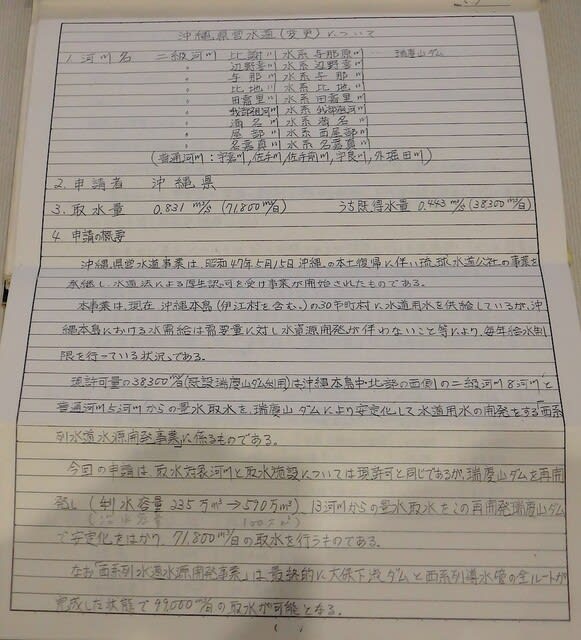 沖縄県営水道(変更)について
1. 河川名 二級河川 比謝川水系与那原川 … 瑞慶山ダム
〃 辺野喜川水系辺野喜川
〃 与那川水系与那川
〃 比地川水系比地川
〃 田嘉里川水系田嘉里川
〃 我部祖河川水系我部祖河川
〃 満名川水系満名川
〃 尾部川水系西尾部川
〃 名嘉真川水系名嘉真川
(普通河川:宇嘉川,佐手川,佐手前川,宇良川,外堀田川)
2. 申請者 沖縄県
3. 取水量 0.831 m³/s (71,800m³/日) うち既得水量 0.443 m³/s(38300m³/日)
4. 申請の概要
沖縄県営水道事業は、昭和47年5月15日沖縄の本土復帰に伴い琉球水道公社の事業を
承継し、水道法による厚生認可を受け事業が開始されたものである。
本事業は、現在 沖縄本島(伊江村を含む。)の30市町村に水道用水を供給しているが、沖
縄本島における水需給は需要量に対し水資源開発が伴わないこと等により、毎年給水制
限を行っている状況である。
現許可量の38300m³/日(既設瑞慶山ダム利用)は沖縄本島中・北部の西側の二級河川8河川と
普通河川5河川からの豊水取水を、瑞慶山ダムにより安定化して水道用水の開発をする「西系
列水道水源開発事業」に係るものである。
今回の申請は、取水対象河川と取水施設については現許可と同じであるが、瑞慶山ダムを再開
発し(利水容量 235万m³→590万m³)、13河川からの豊水取水をこの再開発瑞慶山ダム
で安定化をはかり、71,800m³/日の取水を行うものである。
なお「西系列水道水源開発事業」は最終的に大保下流ダムと西系列導水管の全ルートが
完成した状態で99,000m³/日の取水が可能となる。